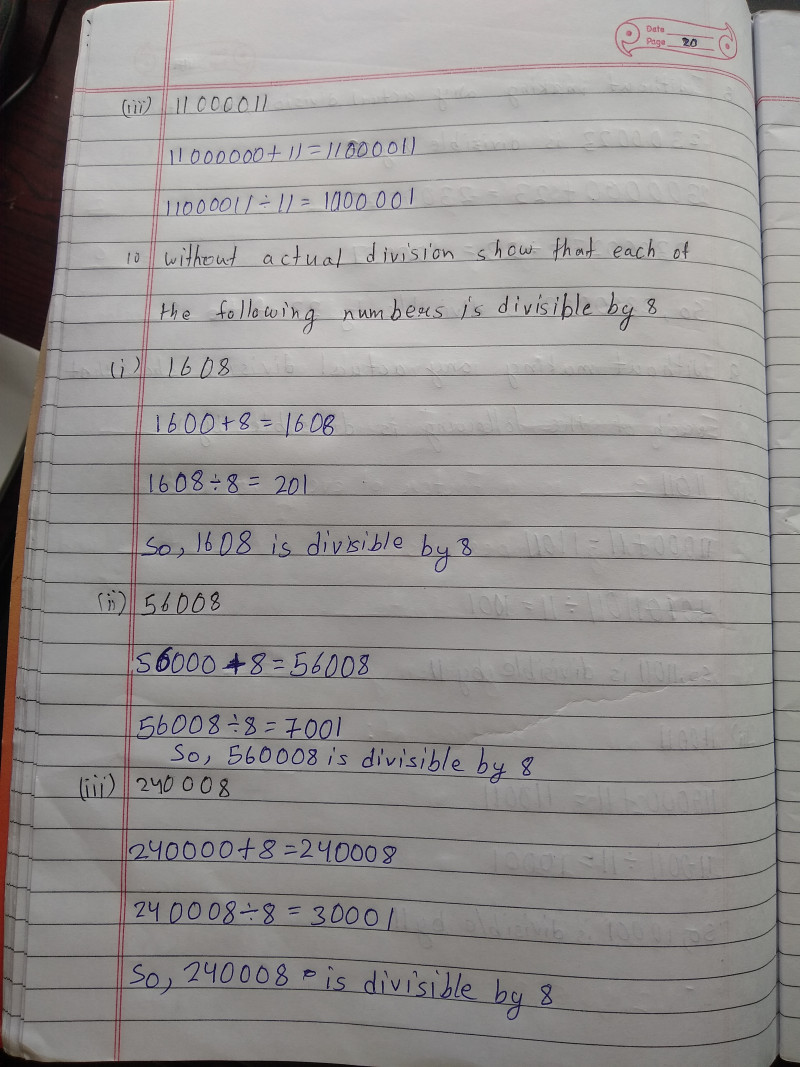 Date
Page 20
(iii) 11000011
11000000 + 11 = 11000011
11000011 ÷ 11 = 1000001
10 without actual division show that each of
the following numbers is divisible by 8
(i) 1608
1600 + 8 = 1608
1608 ÷ 8 = 201
So, 1608 is divisible by 8
(ii) 56008
56000 + 8 = 56008
56008 ÷ 8 = 7001
So, 560008 is divisible by 8
(iii) 240008
240000 + 8 = 240008
240008 ÷ 8 = 30001
So, 240008 is divisible by 8